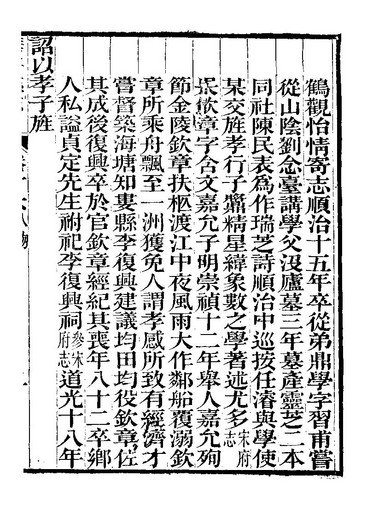 鶴觀怡情寄志順治十五年卒從弟鼎學字習甫嘗
從山陰劉念臺講學父沒廬墓三年墓產靈芝二本
同社陳民表為作瑞芝詩順治中巡按任濬與學使
某交旌孝行子黼精星緯象數之學著述尤多宋府志
張欽章字合文嘉允子明崇禎十二年舉人嘉允殉
節金陵欽章扶柩渡江中夜風雨大作鄰船覆溺欽
章所乘舟飄至一洲獲免人謂孝感所致有經濟才
嘗督築海塘知婁縣李復興建議均田均役欽章佐
其成後復興卒於官欽章經紀其喪年八十二卒鄉
人私謚貞定先生祔祀李復興祠參宋府志道光十八年
詔以孝子旌